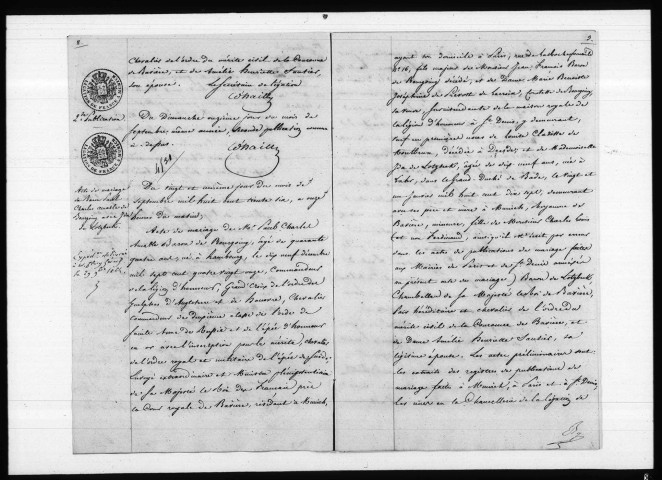 8
Chevalier de l'ordre du mérite civil de la Couronne
de Bavière, et de Amélie Henriette Sautier,
son épouse. Le Secrétaire de légation
2e Publication
Du Dimanche onzième jour du mois de
Septembre même année, Seconde publication comme
ci dessus.
Acte de mariage
de Baron Paul
Charles Amable de
Bourgoing avec Ida
de Lotzbeck.
Du vingt et unième jour du mois de
Septembre mil huit cent trente six, à onze
heures du matin;
Acte de mariage de Mr Paul Charles
Amable Baron de Bourgoing, âgé de quarante
quatre ans, né à hambourg, le dix neuf Décembre
mil sept cent quatre vingt onze, Commandeur
de la légion d'honneur, Grand Croix de l'ordre des
Guelphes d'Angleterre et de Hanovre, Chevalier
commandeur de deuxième classe de l'ordre de
Sainte Anne de Russie et de l'épée d'honneur
en or avec l'inscription pour le mérite, chevalier
de l'ordre royal et militaire de l'épée de Suède,
Envoyé extraordinaire et Ministre plénipotentiaire
de Sa Majesté le Roi des Français près
la Cour royale de Bavière, résidant à Munich,
9
ayant son domicile à Paris, rue de Larochefoucault
No 16, fils majeur de Monsieur Jean François Baron
de Bourgoing décédé, et de Dame Marie Benoiste
Joséphine de Comtesse de Bourgoing,
sa veuve, Surintendante de la maison royale de
la légion d'honneur à St Denis, y demeurant,
veuf en premières noces de Louise Clotilde de
décédée à Dresde; et de Mademoiselle
Ida de Lotzbeck, âgée de dix neuf ans, née à
Lahr, dans le grand Duché de Bade, le vingt et
un janvier mil huit cent dix sept, demeurant
avec ses père et mère à Munich, Royaume de
Bavière, mineure, fille de Monsieur Charles Louis
(et non Ferdinand, ainsi qu'il est écrit par erreur
dans les actes de publications de mariage faites
aux Mairies de Paris et de St Denis annexées
au présent acte de mariage) Baron de Lotzbeck,
Chambellan de Sa Majesté le Roi de Bavière,
Pair héréditaire et chevalier de l'ordre du
mérite civil de la Couronne de Bavière, et
de Dame Amélie Henriette Sautier, sa
légitime épouse. Les actes préliminaires sont
les extraits des registres de publications de
mariage faites à Munich, à Paris et à St Denis,
les unes en la Chancellerie de la légation de